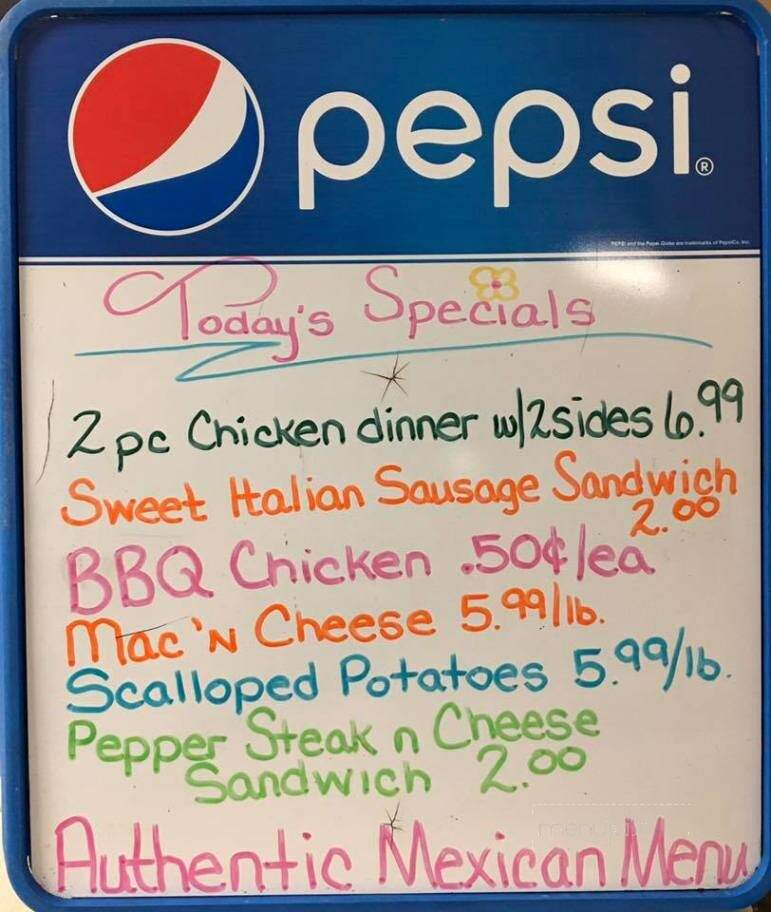 pepsi®
PEPSI and the Pepsi Globe are trademarks of PepsiCo, Inc.
Today's Specials
2 pc Chicken dinner w/2sides 6.99
Sweet Italian Sausage Sandwich
2.00
BBQ Chicken .50¢/ea
Mac 'N Cheese 5.99/lb.
Scalloped Potatoes 5.99/lb.
Pepper Steak n Cheese
Sandwich 2.00
Authentic Mexican Menu